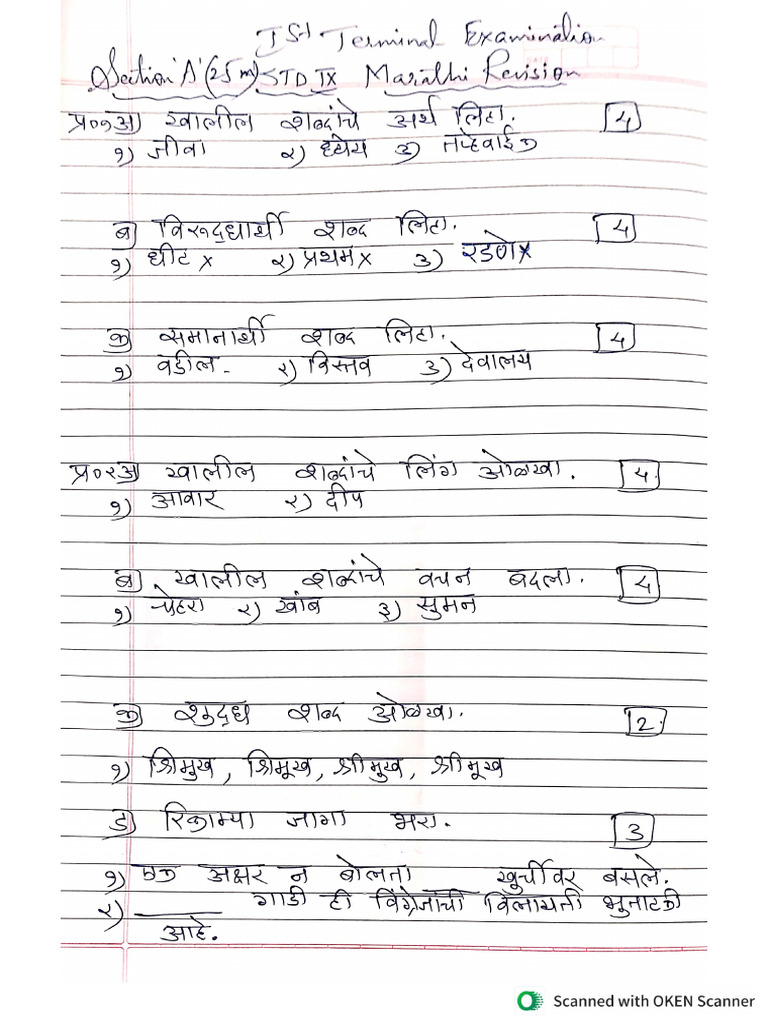 Ist Terminal Examination
Section 'A' (25 m) STD IX Marathi Revision
प्र०१अ) खालील शब्दांचे अर्थ लिहा. 4
१) जीवा २) ध्येय ३) तऱ्हेवाईक
ब) विरूद्धार्थी शब्द लिहा. 4
१) धीट x २) प्रथम x ३) रडणे x
क) समानार्थी शब्द लिहा. 4
१) वडील - २) विस्तव ३) देवालय
प्र०२अ) खालील शब्दांचे लिंग ओळखा. 4
१) आवार २) दीप
ब) खालील शब्दांचे वचन बदला. 4
१) चेहरा २) खांब ३) सुमन
क) शुद्ध शब्द ओळखा. 2
१) श्रिमुख, श्रिमूख, श्रीमुख, श्रीमूख
ड) रिकाम्या जागा भरा. 3
१) एक अक्षर न बोलता खुर्चीवर बसले.
२) ______ गाडी ही विंग्रेजांची विलायती भुताटकी
आहे.
Scanned with OKEN Scanner